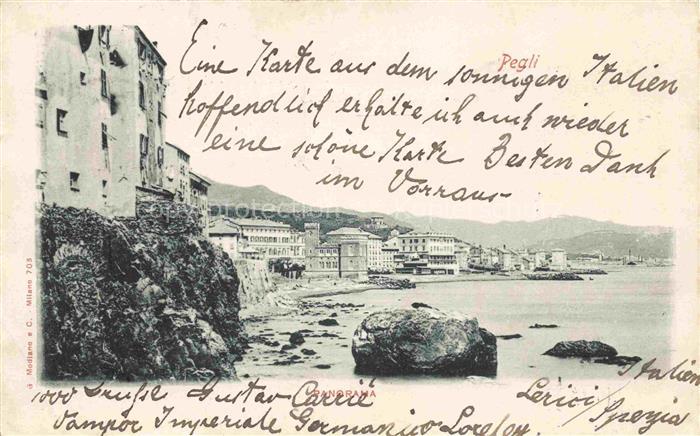 Pegli
Eine Karte aus dem sonnigen Italien
hoffendlich erhälte ich auch wieder
eine schöne Karte Besten Dank
im Vorraus
G Modiano e C. - Milano 703
PANORAMA
1000 Grüsse Gustav
Vampor Imperiale Germanico Loreley
Lerici
Italien
Spezia